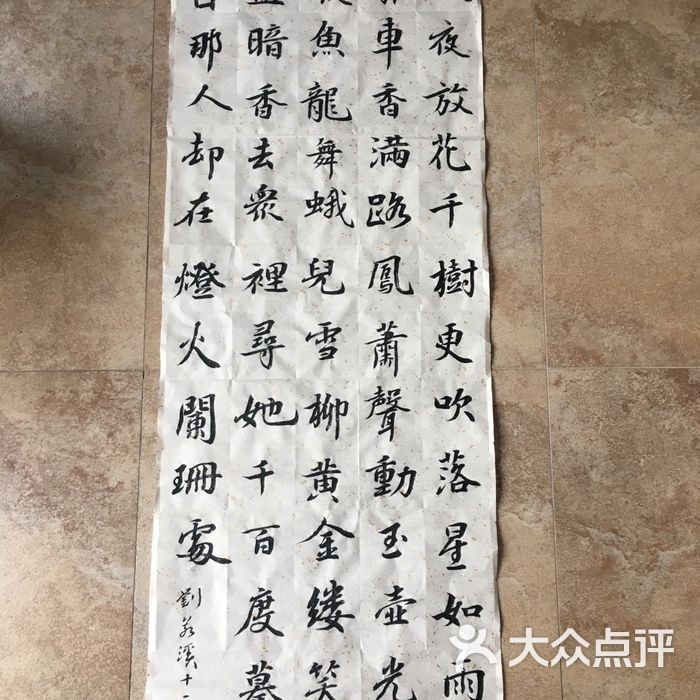 夜放花千樹更吹落星如雨
車香滿路鳳蕭聲動玉壺光
魚龍舞蛾兒雪柳黄金缕笑
盈暗香去衆裡尋她千百度
那人却在燈火闌珊處
劉若溪十
大众点评